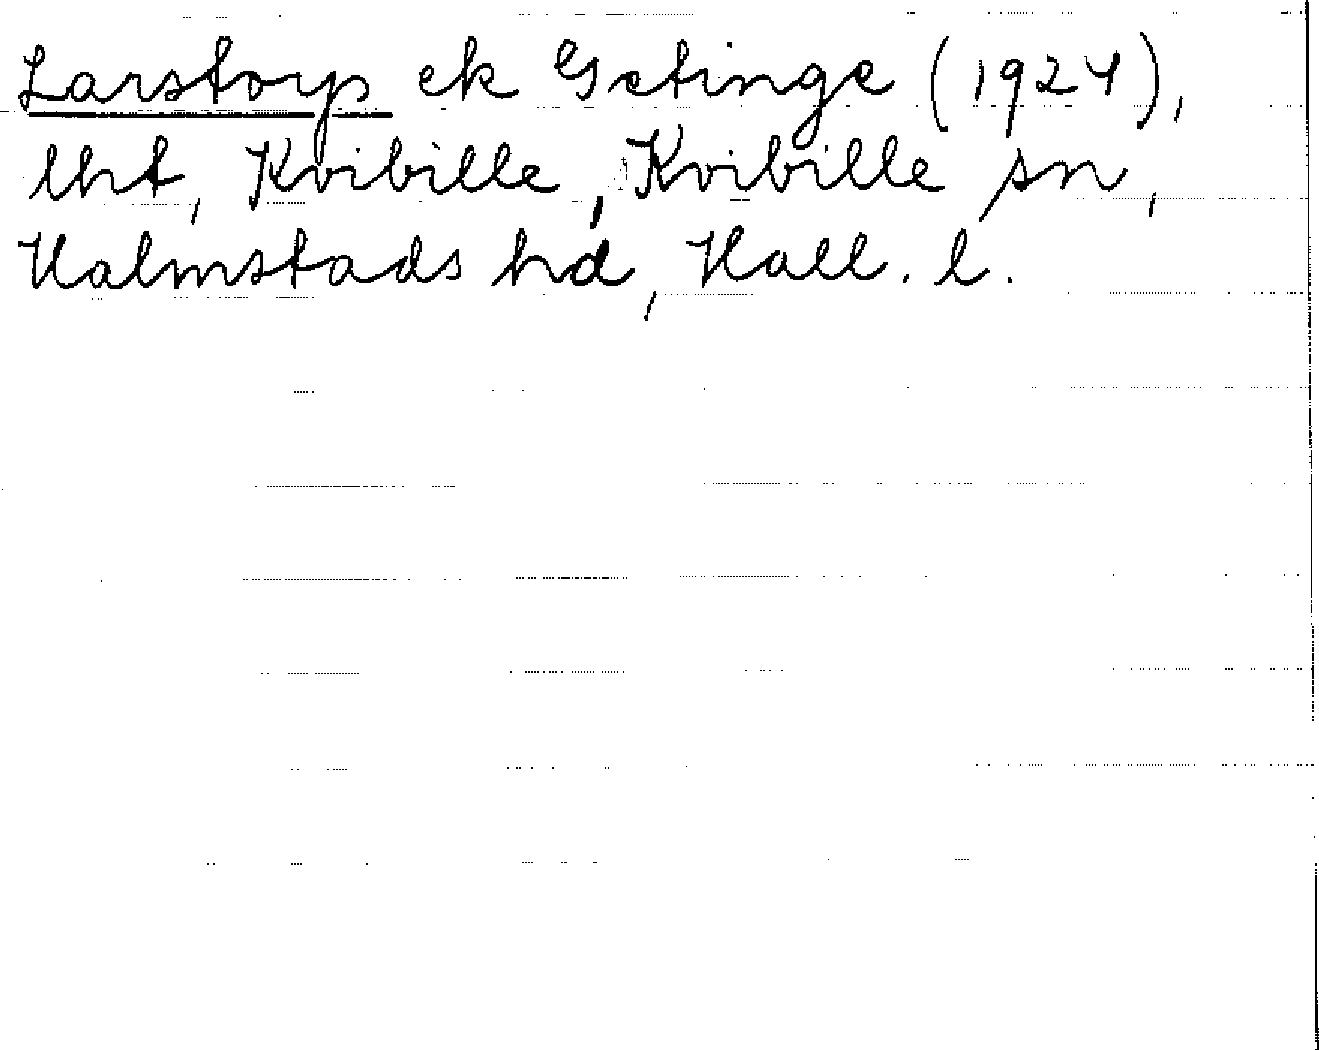 Larstorp ek Getinge (1924),
lht, Kvibille, Kvibille sn,
Halmstads hd, Hall. l.